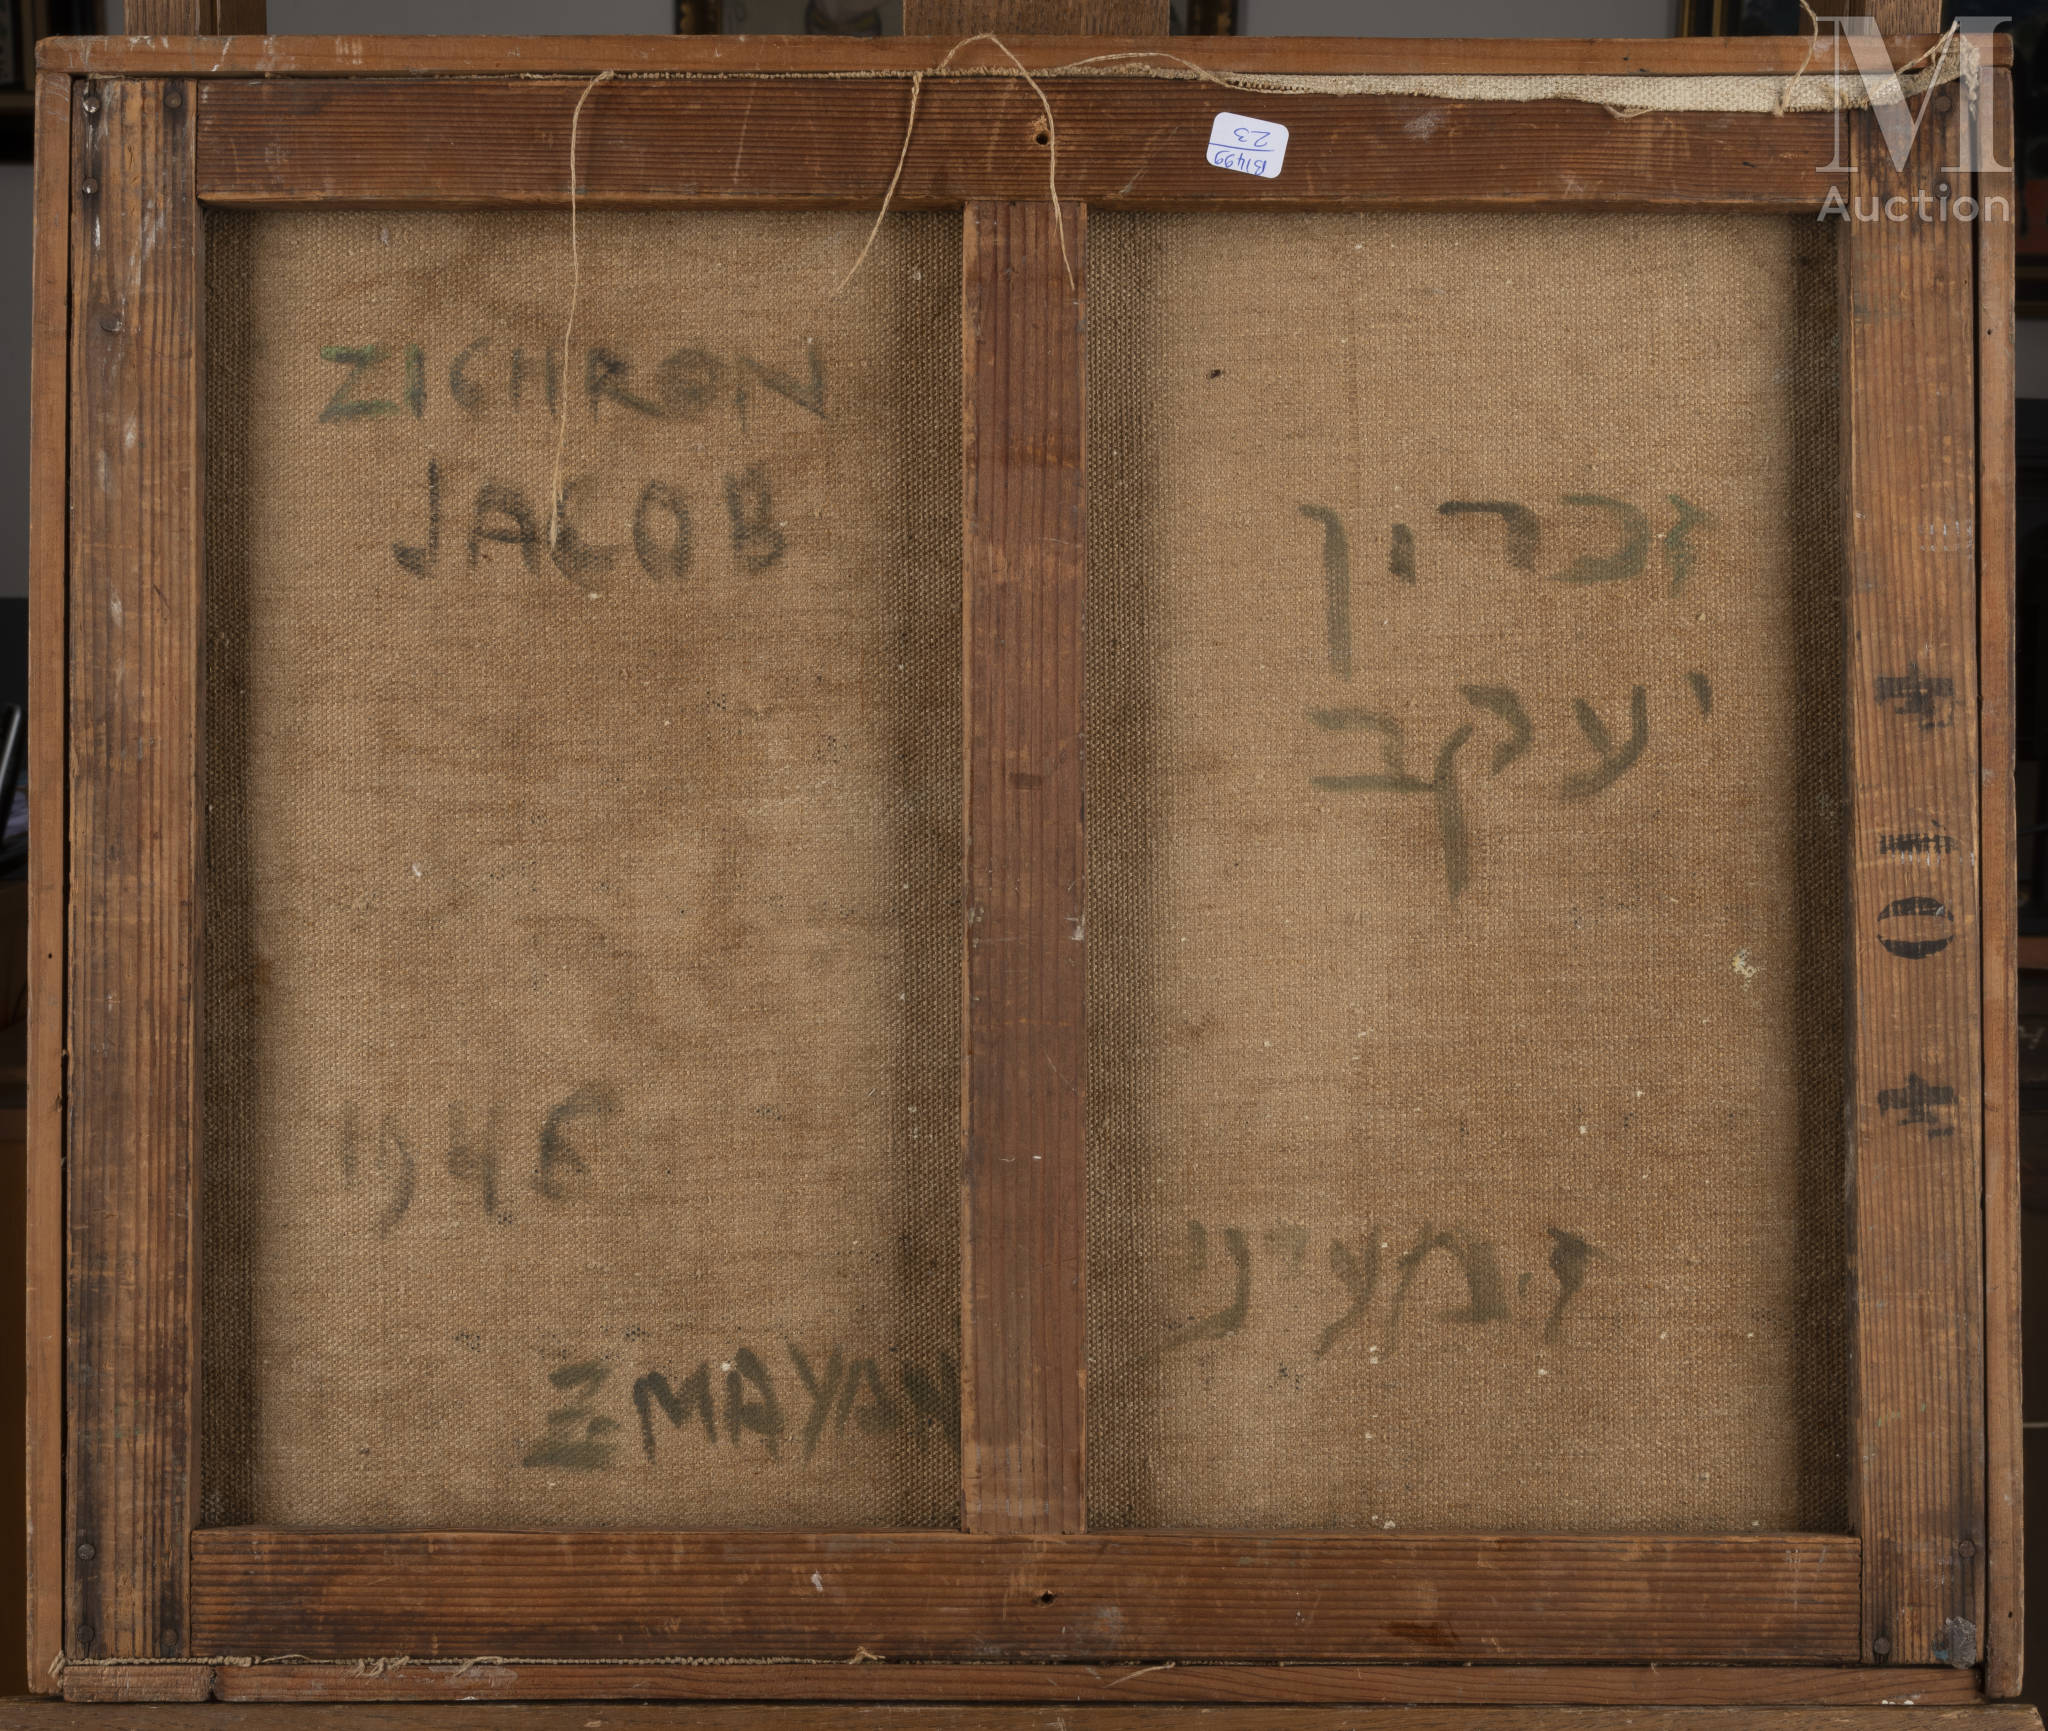 M
Auction
B1499
23
ZICHRON
JACOB
זכרון
יעקב
1946
Z. MAYAN
ז. מעין